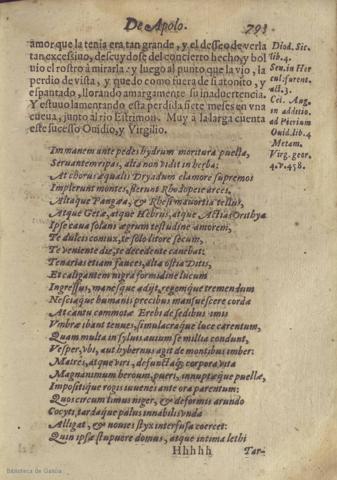 De Apolo. 793
amor que la tenia era tan grande, y el desseo de verla
tan excessiuo, descuydose del concierto hecho, y bol
uio el rostro à mirarla: y luego al punto que la vio, la
perdio de vista, y quedo como fuera de si atonito, y
espantado, llorando amargamente su inaduertencia.
Y estuuo lamentando esta perdida siete meses en vna
cueua, junto al rio Estrimon. Muy à la larga cuenta
este sucesso Ouidio, y Virgilio.
Diod. Sic.
lib. 4.
Sen. in Her
cul: furent.
act. 3.
Cei. Aug.
in additio.
ad Petrium
Ouid. lib. 4
Metam.
Virg. geor
4. v. 458.
Immanem ante pedes hydrum moritura puella,
Seruantem ripas, alta non vidit in herba:
At chorus æqualis Dryadum clamore supremos
Implerunt montes, flerunt Rhodopeiæ arces,
Altaque Pangæa, & Rhesi mauortia tellus,
Atque Getæ, atque Hebrus, atque Actias Orithya
Ipse caua solans ægrum testudine amorem,
Te dulcis coniux, te solo litore secum,
Te veniente die, te decedente canebat:
Tenarias etiam fauces, alta ostia Ditis,
Et caligantem nigra formidine lucum
Ingressus, manesque adijt, regemque tremendum
Nesciaque humanis precibus mansuescere corda
At cantu commotæ Erebi de sedibus imis
Vmbræ ibant tenues, simulacraque luce carentum,
Quam multa in syluis auium se millia condunt,
Vesper, vbi, aut hybernus agit de montibus imber:
Matres, atque viri, defunctaque corpora vita
Magnanimum heroum, pueri, innuptæque puellæ,
Impositique rogis iuuenes ante ora parentum;
Quos circum limus niger, & deformis arundo
Cocyti, tardaque palus innabilis vnda
Alligat, & nouies styx interfusa coercet:
Quin ipsæ stupuere domus, atque intima lethi
Hhhhh Tar-
Biblioteca de Galicia